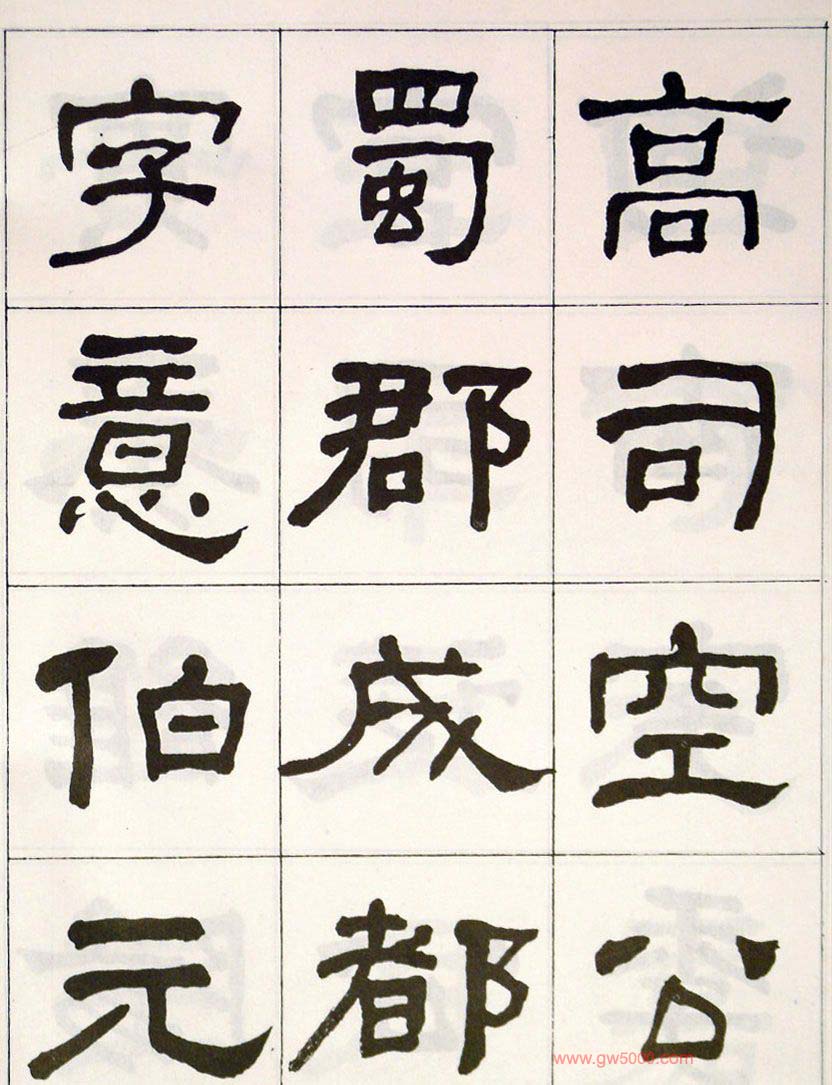 高司空公
蜀郡成都
字意伯元
www.gw5000.com